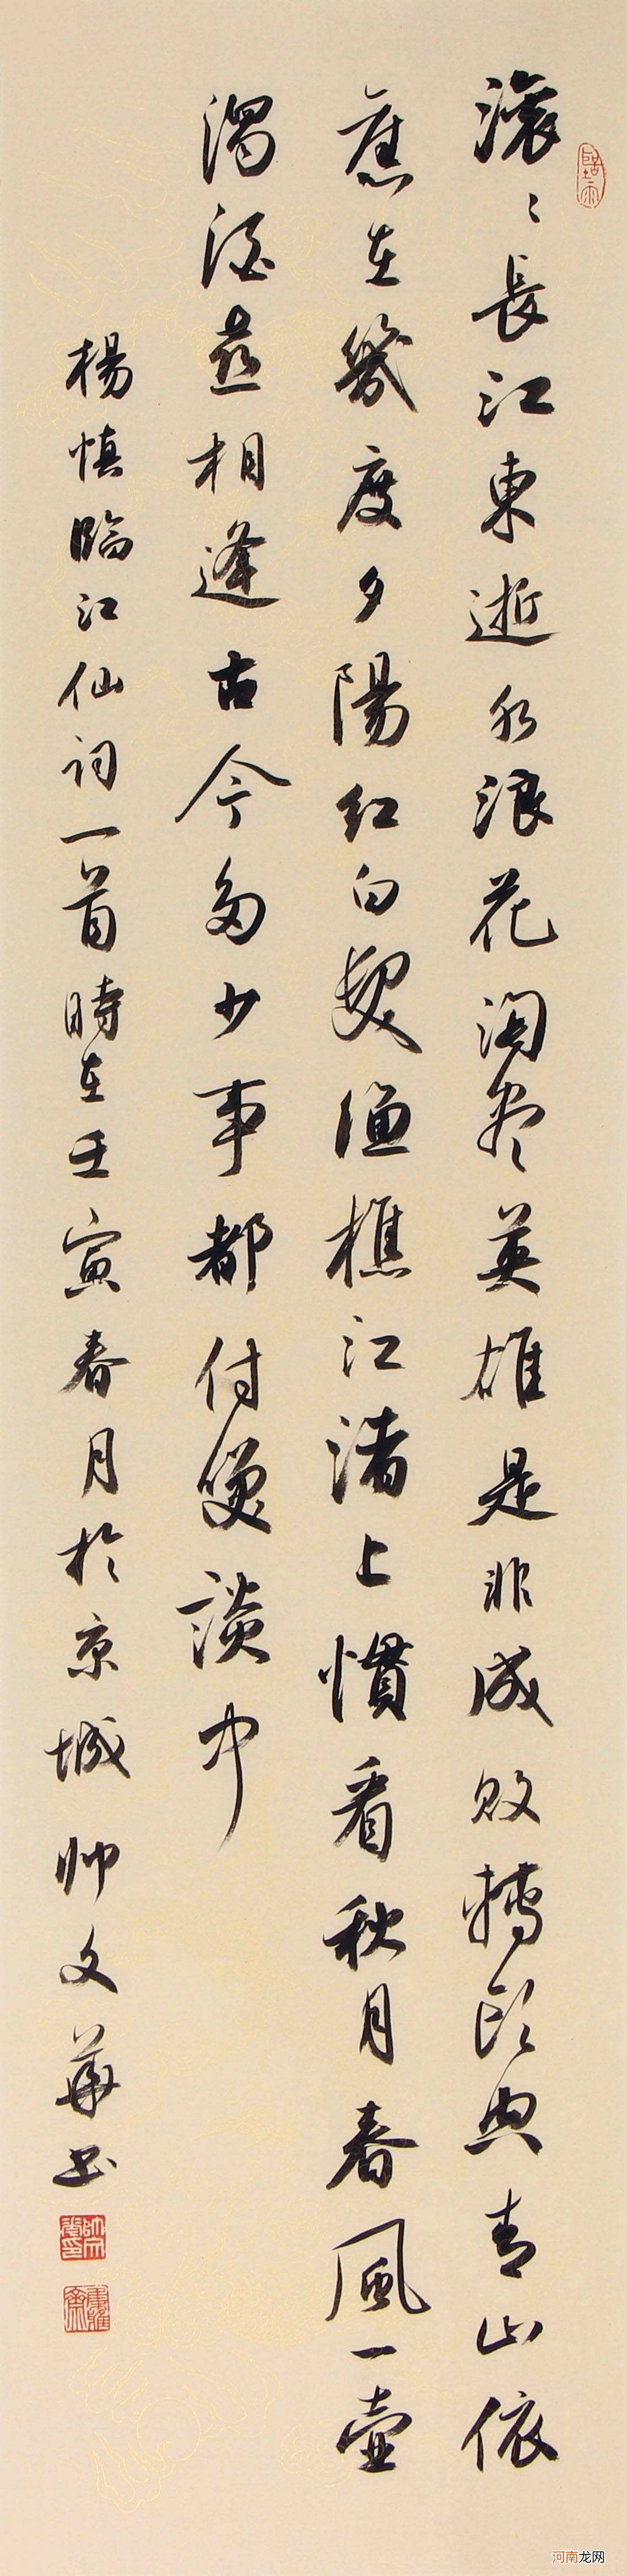 滚〻長江東逝水浪花淘尽英雄是非成敗轉頭空青山依
舊在幾度夕陽紅白髮漁樵江渚上慣看秋月春風一壺
濁酒喜相逢古今多少事都付笑談中
楊慎臨江仙詞一首時在壬寅春月於京城帥文華书
河南龙网